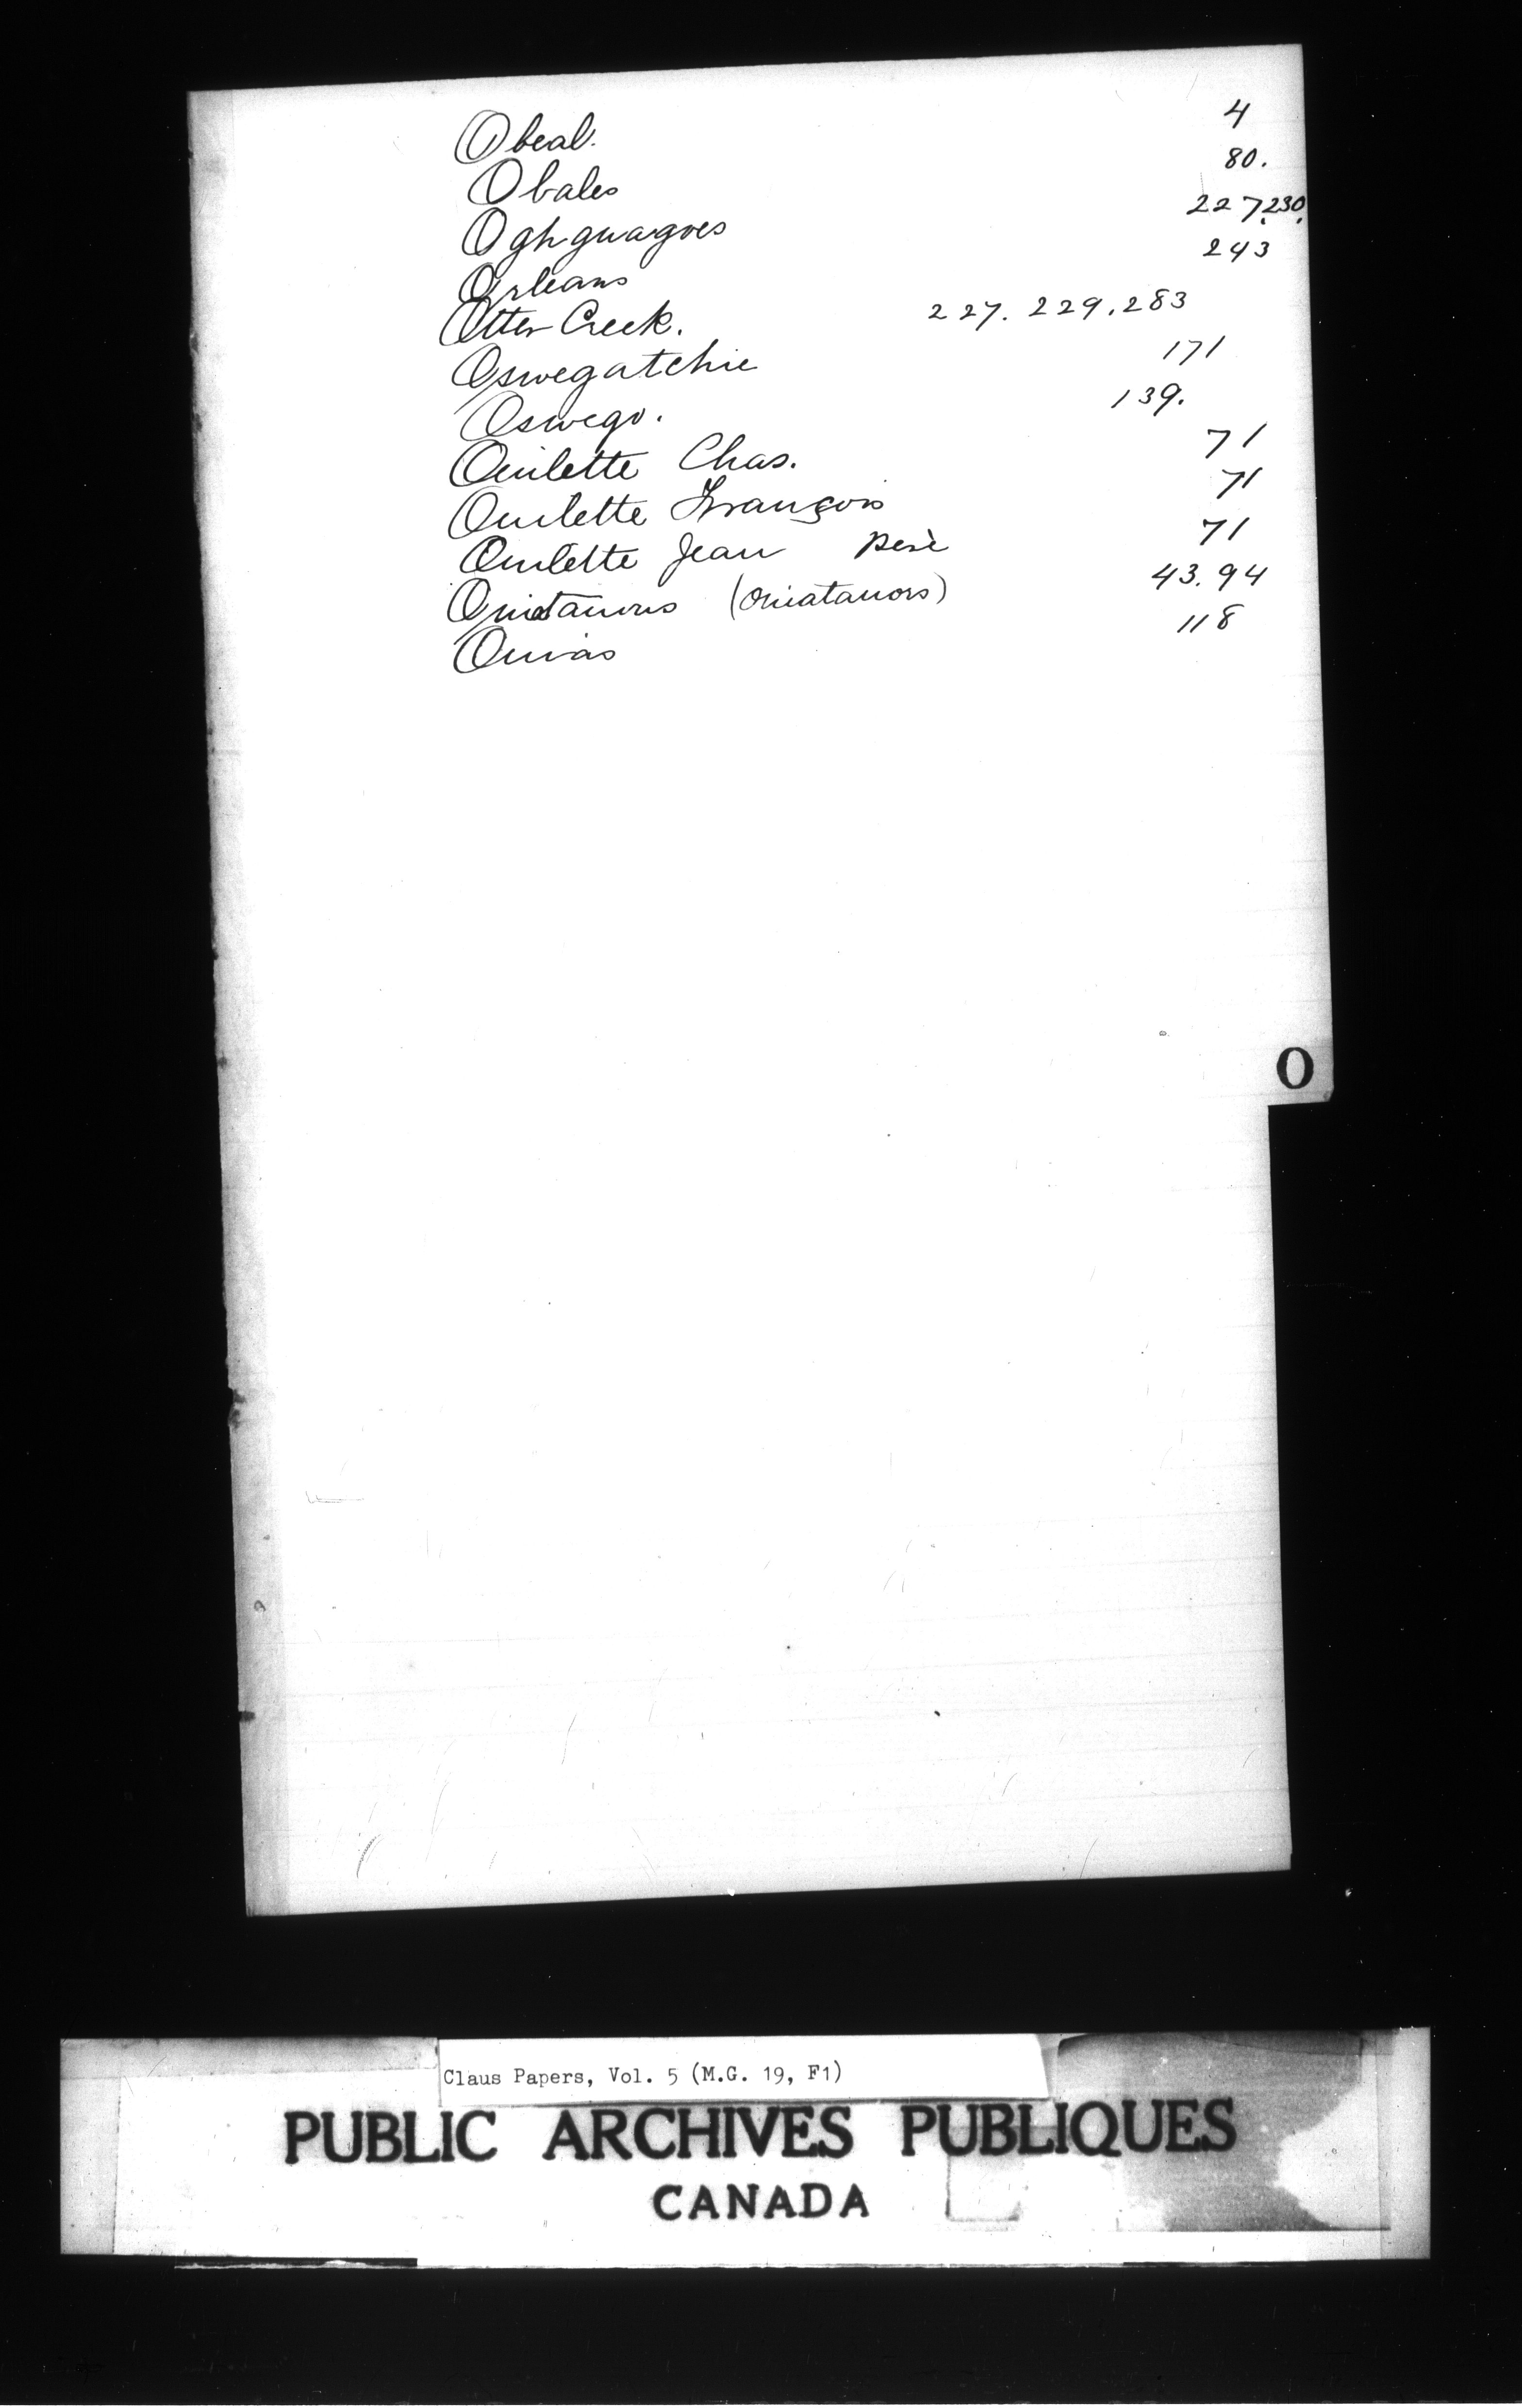 Obeal. 4
Obales 80.
Oghguagoes 227, 230.
Orleans 243
Otter Creek. 227. 229. 283
Oswegatchie 171
Oswego. 139.
Ouilette Chas. 71
Ouilette François 71
Ouilette Jean perè 71
Ouiatanons (Ouiatanons) 43. 94
Ouias 118
O
Claus Papers, Vol. 5 (M.G. 19, F1)
PUBLIC ARCHIVES PUBLIQUES
CANADA